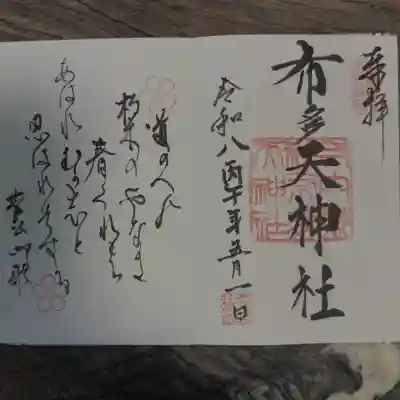 奉拝
布多天神社
令和八丙午年五月一日
道のへの
朽木のやなき
春くれは
あはれむかしと
思はれそする
菅公御歌